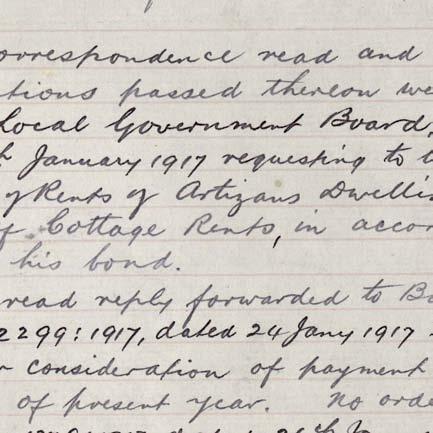 orrespondence read and
tions passed thereon we
Local Government Board,
January 1917 requesting to
of Rents of Artizans Dwelli
of Cottage Rents, in accor
his bond.
read reply forwarded to Bo
2299:1917, dated 24 Jany 1917
consideration of payment
of present year. No orde